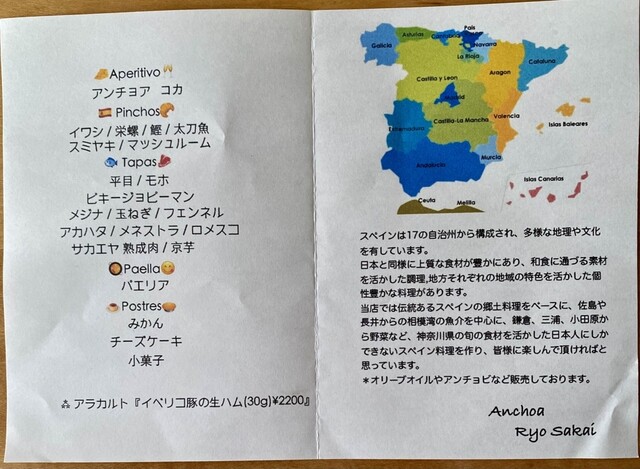 Aperitivo
アンチョア コカ
Pinchos
イワシ / 栄螺 / 鰹 / 太刀魚
スミヤキ / マッシュルーム
Tapas
平目 / モホ
ピキージョピーマン
メジナ / 玉ねぎ / フェンネル
アカハタ / メネストラ / ロメスコ
サカエヤ 熟成肉 / 京芋
Paella
パエリア
Postres
みかん
チーズケーキ
小菓子
⁂ アラカルト『イベリコ豚の生ハム(30g)¥2200』
Galicia
Asturias
Cantabria
País
Navarra
La Rioja
Cataluna
Aragon
Castilla y Leon
Madrid
Castilla-La Mancha
Extremadura
Valencia
Islas Baleares
Murcia
Andalucia
Islas Canarias
Ceuta
Melilla
スペインは17の自治州から構成され、多様な地理や文化
を有しています。
日本と同様に上質な食材が豊かにあり、和食に通づる素材
を活かした調理,地方それぞれの地域の特色を活かした個
性豊かな料理があります。
当店では伝統あるスペインの郷土料理をベースに、佐島や
長井からの相模湾の魚介を中心に、鎌倉、三浦、小田原か
ら野菜など、神奈川県の旬の食材を活かした日本人にしか
できないスペイン料理を作り、皆様に楽しんで頂ければと
思っています。
＊オリーブオイルやアンチョビなど販売しております。
Anchoa
Ryo Sakai